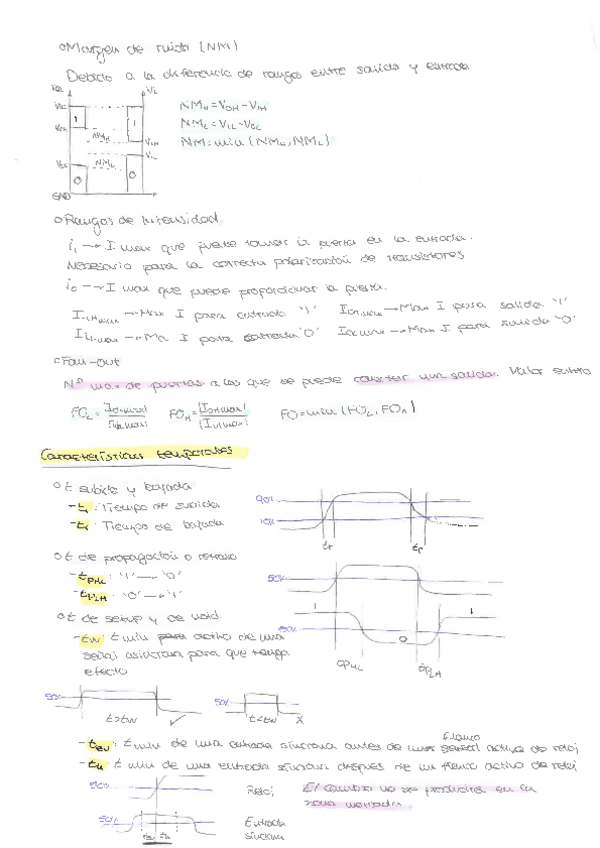 o Margen de ruido (NM)
Debido a la diferencia de rangos entre salida y entrada
NMH = VOH - VIH
NML = VIL - VOL
NM = min (NMH, NML)
1
1
NMH
NML
0
0
VIH
VIL
GND
o Rangos de Intensidad
ii → I max que puede tomar la puerta en la entrada.
Necesario para la correcta polarización de transistores
io → I max que puede proporcionar la puerta.
IIHmax → Max I para entrada '1' IOHmax → Max I para salida '1'
IILmax → Ma I para entrada '0' IOLmax → Max I para salida '0'
o Fan-out
Nº max de puertas a las que se puede conectar una salida. Valor entero
FOL = |IOLmax| / |IILmax| FOH = |IOHmax| / |IIHmax| FO = min (FOL, FOH)
Características temporales
o t subida y bajada
- tr: Tiempo de subida
- tf: Tiempo de bajada
90%
10%
tr
tf
o t de propagación o retraso
- tPHL: '1' → '0'
- tPLH: '0' → '1'
50%
o t de setup y de hold
- tw: t min para activo de una
señal asíncrona para que tenga
efecto
50%
1
0
1
50%
t>tw
✓
50%
t<tw
X
Flanco
- tsu: t min de una entrada síncrona antes de un señal activo de reloj
- th: t min de una entrada síncrona después de un flanco activo de reloj
50%
Reloj
El cambio no se producirá en la
zona marcada.
50%
Entrada
síncrona
tsu
th